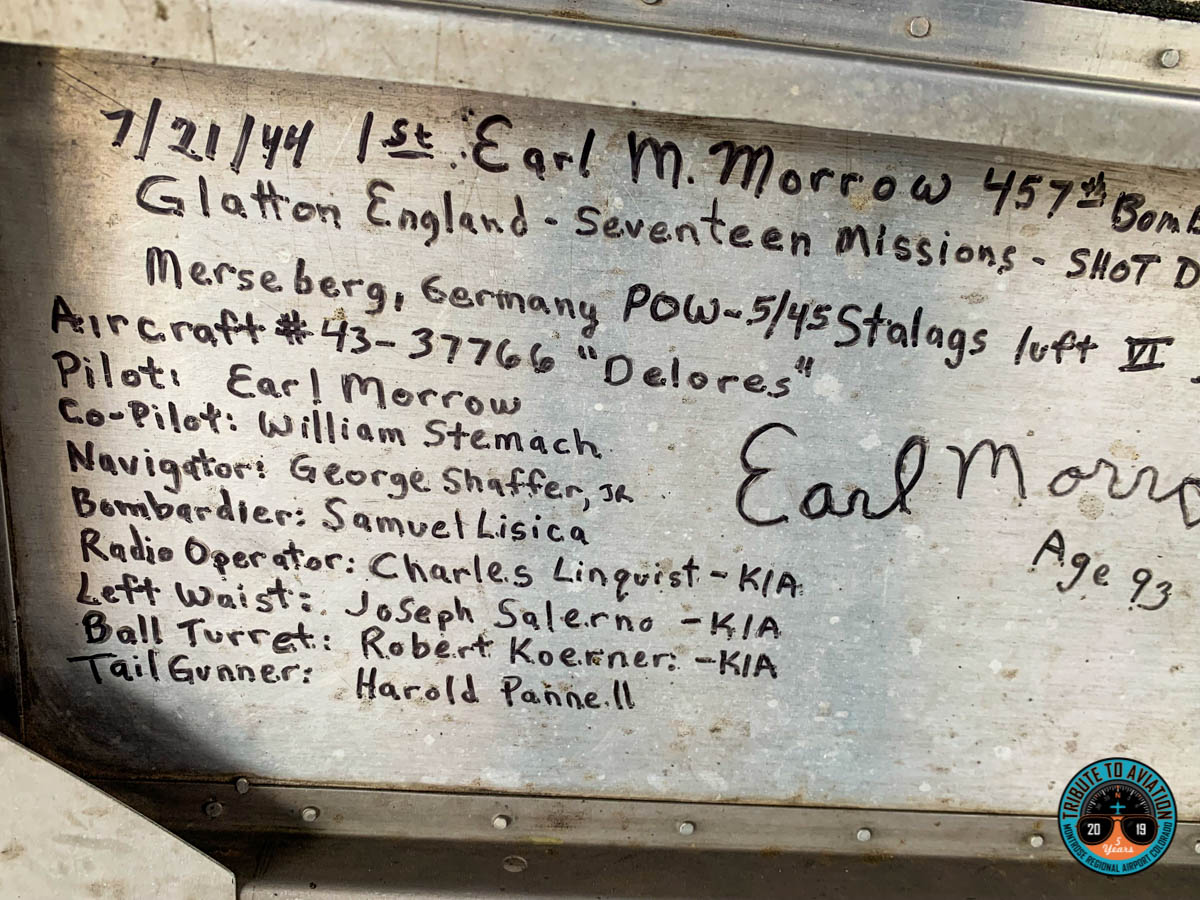 7/21/44 1st Earl M. Morrow 457th Bomb
Glatton England - Seventeen Missions - SHOT D
Merseberg, Germany POW - 5/45 Stalags luft VI
Aircraft # 43-37766 "Delores"
Pilot: Earl Morrow
Co-Pilot: William Stemach
Navigator: George Shaffer, JR
Bombardier: Samuel Lisica
Radio Operator: Charles Linquist - KIA
Left Waist: Joseph Salerno - KIA
Ball Turret: Robert Koerner: - KIA
Tail Gunner: Harold Pannell
Earl Morro
Age 93
TRIBUTE TO AVIATION
2019
5 Years
MONTROSE REGIONAL AIRPORT COLORADO